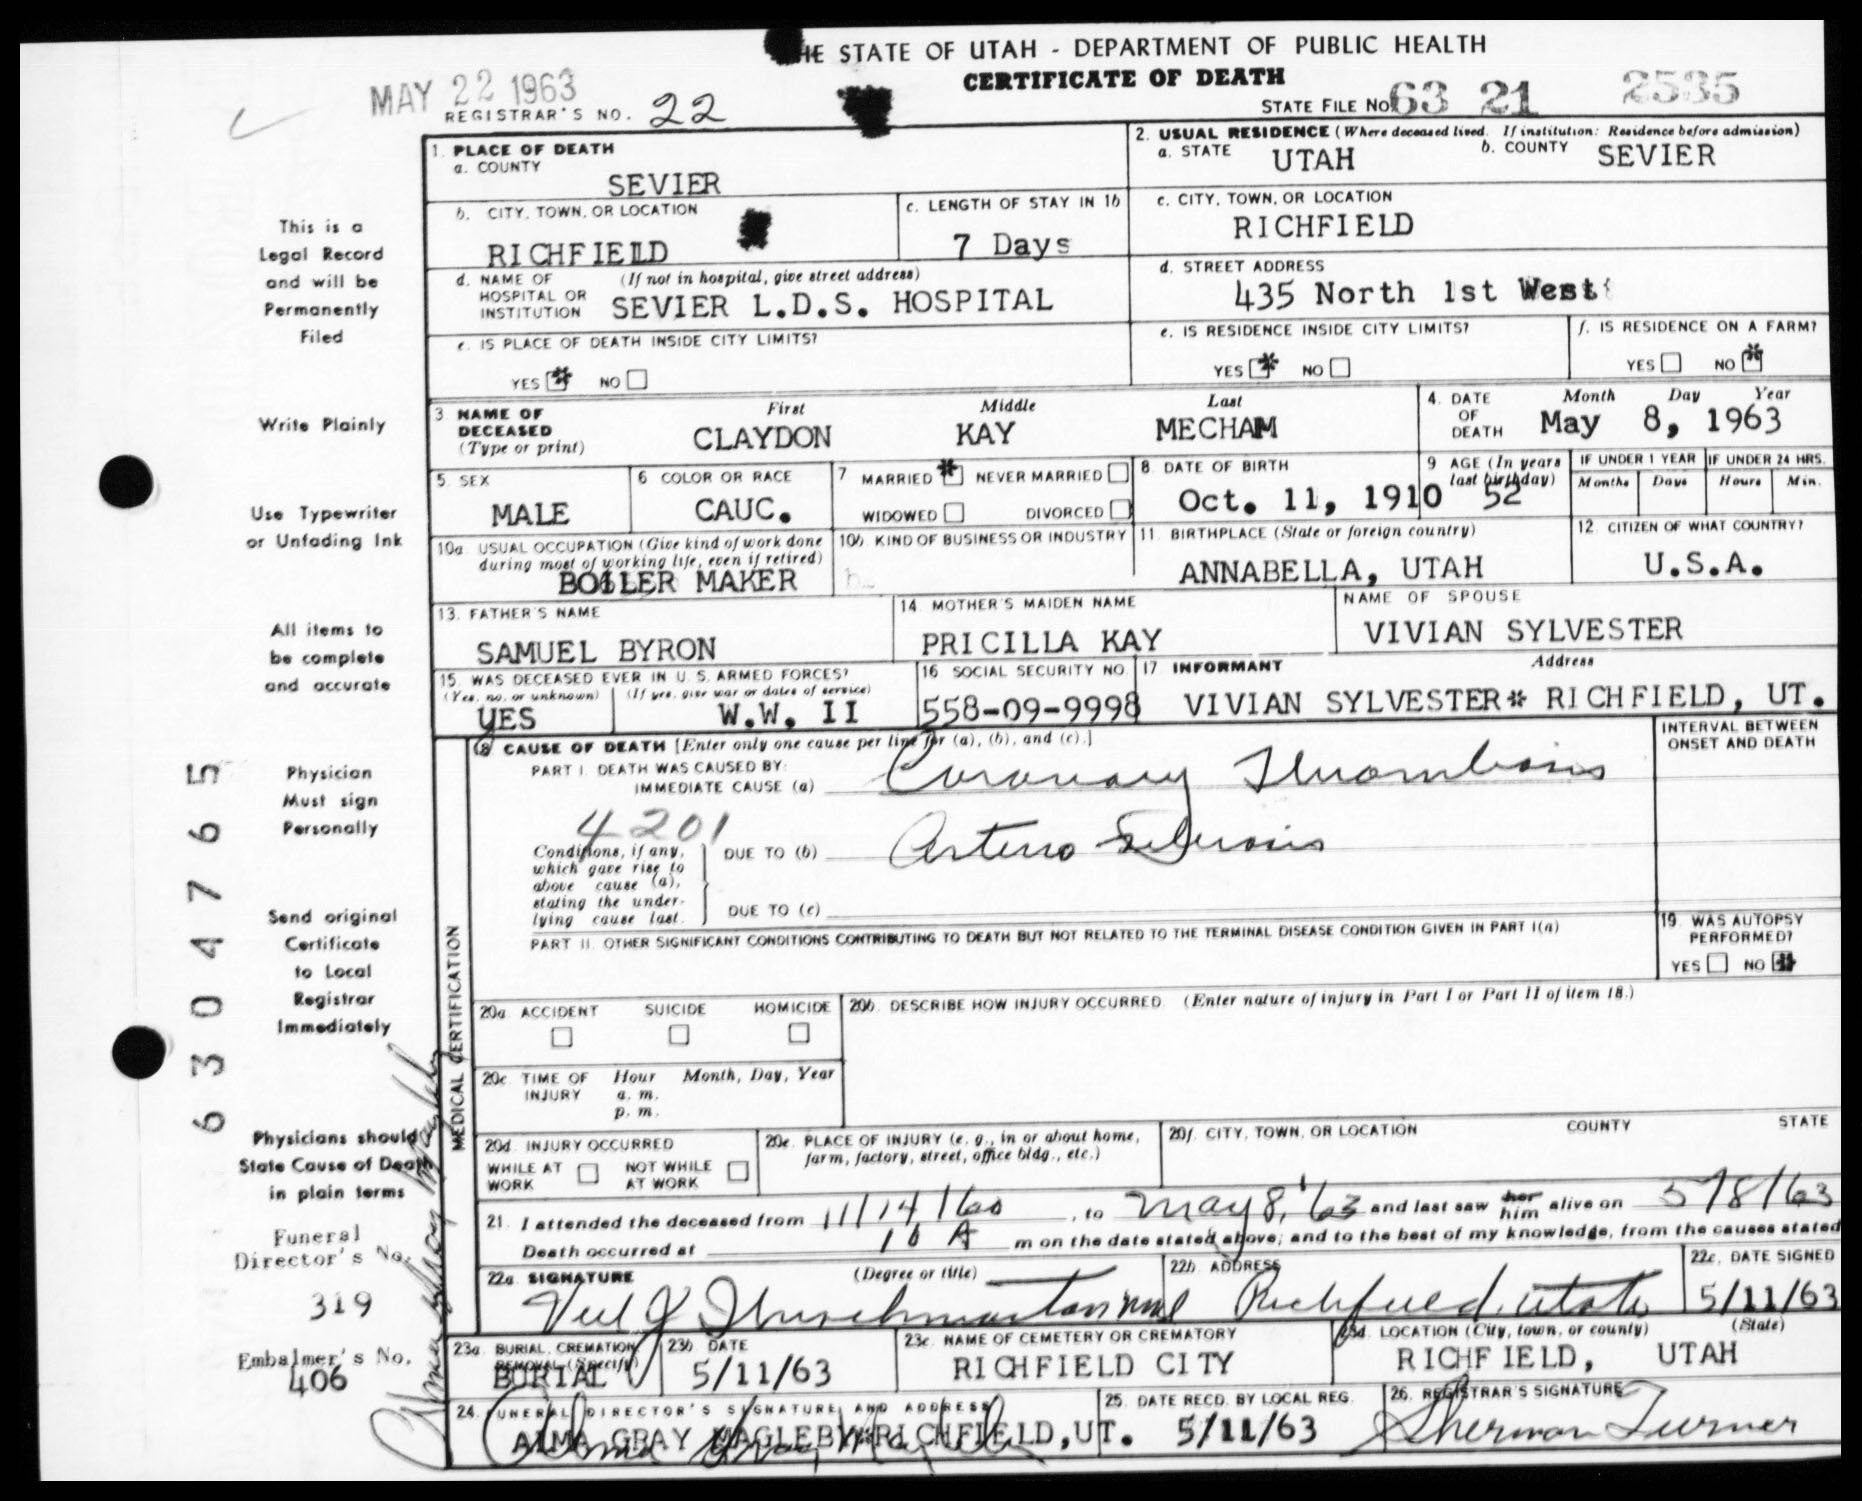 THE STATE OF UTAH - DEPARTMENT OF PUBLIC HEALTH
CERTIFICATE OF DEATH
MAY 22 1963
REGISTRAR'S NO. 22
STATE FILE NO. 63 21 2535
1. PLACE OF DEATH
a. COUNTY
SEVIER
2. USUAL RESIDENCE (Where deceased lived. If institution: Residence before admission)
a. STATE UTAH b. COUNTY SEVIER
b. CITY, TOWN, OR LOCATION
RICHFIELD
c. LENGTH OF STAY IN 1b
7 Days
c. CITY, TOWN, OR LOCATION
RICHFIELD
d. NAME OF HOSPITAL OR INSTITUTION (If not in hospital, give street address)
SEVIER L.D.S. HOSPITAL
d. STREET ADDRESS
435 North 1st West
e. IS PLACE OF DEATH INSIDE CITY LIMITS?
YES * NO
e. IS RESIDENCE INSIDE CITY LIMITS?
YES * NO
f. IS RESIDENCE ON A FARM?
YES NO *
3 NAME OF DECEASED (Type or print)
First Middle Last
CLAYDON KAY MECHAM
4. DATE OF DEATH Month Day Year
May 8, 1963
5. SEX
MALE
6 COLOR OR RACE
CAUC.
7 MARRIED * NEVER MARRIED
WIDOWED DIVORCED
8. DATE OF BIRTH
Oct. 11, 1910
9 AGE (In years last birthday)
52
IF UNDER 1 YEAR
Months Days
IF UNDER 24 HRS.
Hours Min.
10a. USUAL OCCUPATION (Give kind of work done during most of working life, even if retired)
BOILER MAKER
10b. KIND OF BUSINESS OR INDUSTRY
11. BIRTHPLACE (State or foreign country)
ANNABELLA, UTAH
12. CITIZEN OF WHAT COUNTRY?
U.S.A.
13. FATHER'S NAME
SAMUEL BYRON
14. MOTHER'S MAIDEN NAME
PRICILLA KAY
NAME OF SPOUSE
VIVIAN SYLVESTER
15. WAS DECEASED EVER IN U. S. ARMED FORCES?
(Yes, no, or unknown) (If yes, give war or dates of service)
YES W.W. II
16 SOCIAL SECURITY NO.
558-09-9998
17 INFORMANT Address
VIVIAN SYLVESTER* RICHFIELD, UT.
MEDICAL CERTIFICATION
18 CAUSE OF DEATH [Enter only one cause per line for (a), (b), and (c).]
PART I. DEATH WAS CAUSED BY:
IMMEDIATE CAUSE (a) Coronary Thrombosis
4201
Conditions, if any, which gave rise to above cause (a), stating the underlying cause last.
DUE TO (b) Arterio Sclerosis
DUE TO (c)
INTERVAL BETWEEN ONSET AND DEATH
PART II. OTHER SIGNIFICANT CONDITIONS CONTRIBUTING TO DEATH BUT NOT RELATED TO THE TERMINAL DISEASE CONDITION GIVEN IN PART I(a)
19. WAS AUTOPSY PERFORMED?
YES NO *
20a. ACCIDENT SUICIDE HOMICIDE
20b. DESCRIBE HOW INJURY OCCURRED. (Enter nature of injury in Part I or Part II of item 18.)
20c. TIME OF INJURY Hour Month, Day, Year
a. m.
p. m.
20d. INJURY OCCURRED
WHILE AT WORK NOT WHILE AT WORK
20e. PLACE OF INJURY (e. g., in or about home, farm, factory, street, office bldg., etc.)
20f. CITY, TOWN, OR LOCATION COUNTY STATE
21. I attended the deceased from 11/14/60, to May 8, '63 and last saw her him alive on 5/8/63
Death occurred at 10 A m on the date stated above; and to the best of my knowledge, from the causes stated
22a. SIGNATURE (Degree or title)
22b. ADDRESS
Richfield, Utah
22c. DATE SIGNED
5/11/63
23a. BURIAL, CREMATION, REMOVAL (Specify)
BURIAL
23b. DATE
5/11/63
23c. NAME OF CEMETERY OR CREMATORY
RICHFIELD CITY
23d. LOCATION (City, town, or county) (State)
RICHFIELD, UTAH
24. FUNERAL DIRECTOR'S SIGNATURE AND ADDRESS
ALMA GRAY MAGLEBY*RICHFIELD,UT.
Alma Gray Magleby
25. DATE RECD. BY LOCAL REG.
5/11/63
26. REGISTRAR'S SIGNATURE
Sherman Turner
This is a
Legal Record
and will be
Permanently
Filed
Write Plainly
Use Typewriter
or Unfading Ink
All items to
be complete
and accurate
Physician
Must sign
Personally
Send original
Certificate
to Local
Registrar
Immediately
Physicians should
State Cause of Death
in plain terms
Funeral
Director's No.
319
Embalmer's No.
406
63047655
Alma Gray Magleby